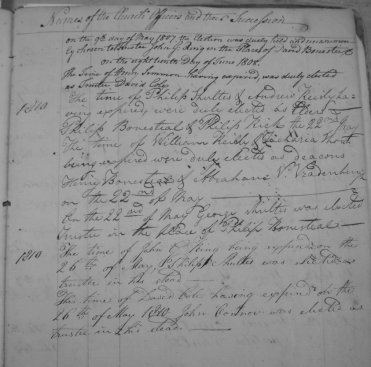 Names of the Church Officers and there Succession
on the 9th day of May 1807, the Election was duly held and unanimously
by chosen trustee John C Ring in the Place of David Bonesteel
on the eight ninth Day of June 1808.
The Time of Henry having expired was duly elected
as Trustee David Coly
The time of Philip Shultes & Andrew being
expired were duly elected as Elders
1810 Philip Bonestial & Philip Kirk the 22nd May
The time of William & Zacharia
being expired were duly elected as Deacons
Henry Bonesteel & Abraham V. Vradenburg
on the 22nd of May
On the 22nd of May George Shultes was elected
trustee in the place of Philip Bonestial
1810 The time of John C Ring being expired on the
26th of May Philip Shultes was elected a
trustee in his stead
The time of David having expired on the
26th of May 1810 John was elected as
trustee in his stead